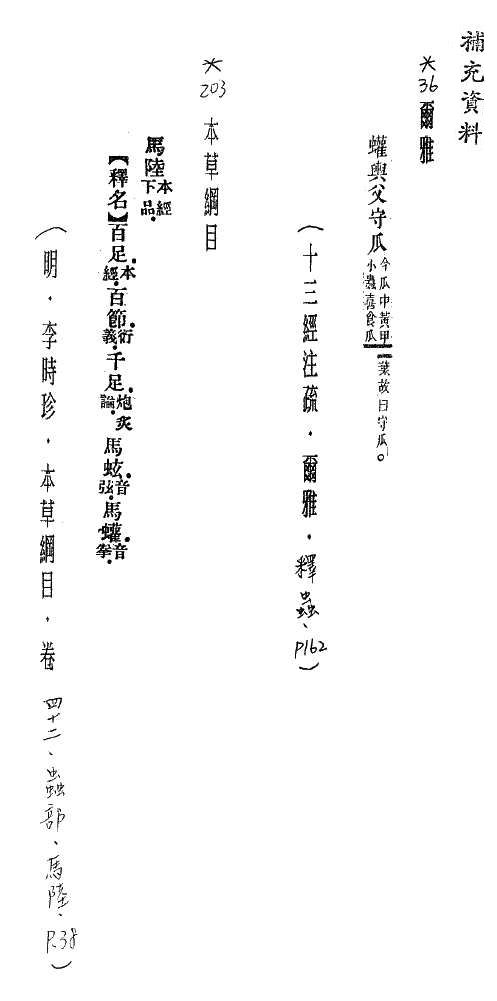 補充資料
*36 爾雅
蠸輿父守瓜 今瓜中黃甲小蟲喜食瓜葉故曰守瓜。
(十三經注疏.爾雅.釋蟲、P162)
*203 本草綱目
馬陸 本經下品.
【釋名】百足.本經.百節.衍義.千足.炮炙論.馬蚿.音弦.馬蠸.音拳.
(明.李時珍.本草綱目.卷四十二、蟲部、馬陸、P.38)